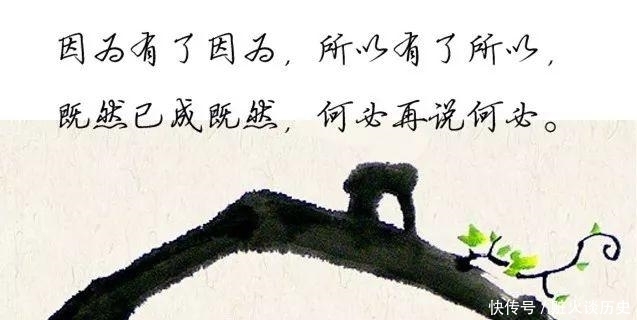 因为有了因为，所以有了所以，
既然已成既然，何必再说何必。
快传号／